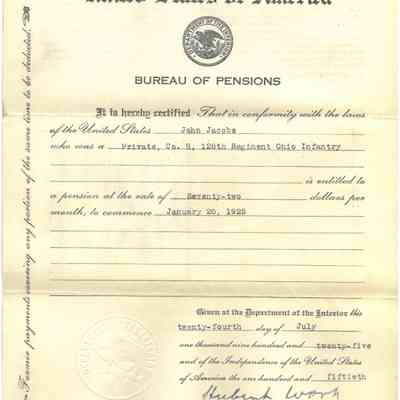 United States of America
BUREAU OF PENSIONS
It is hereby certified That in conformity with the laws
of the United States John Jacobs
who was a Private, Co. H, 128th Regiment Ohio Infantry
is entitled to
a pension at the rate of Seventy-two dollars per
month, to commence January 20, 1925
Given at the Department of the Interior this
twenty-fourth day of July
one thousand nine hundred and twenty-five
and of the Independence of the United States
of America the one hundred and fiftieth
Hubert Work
Former payments covering any portion of the same time to be deducted.